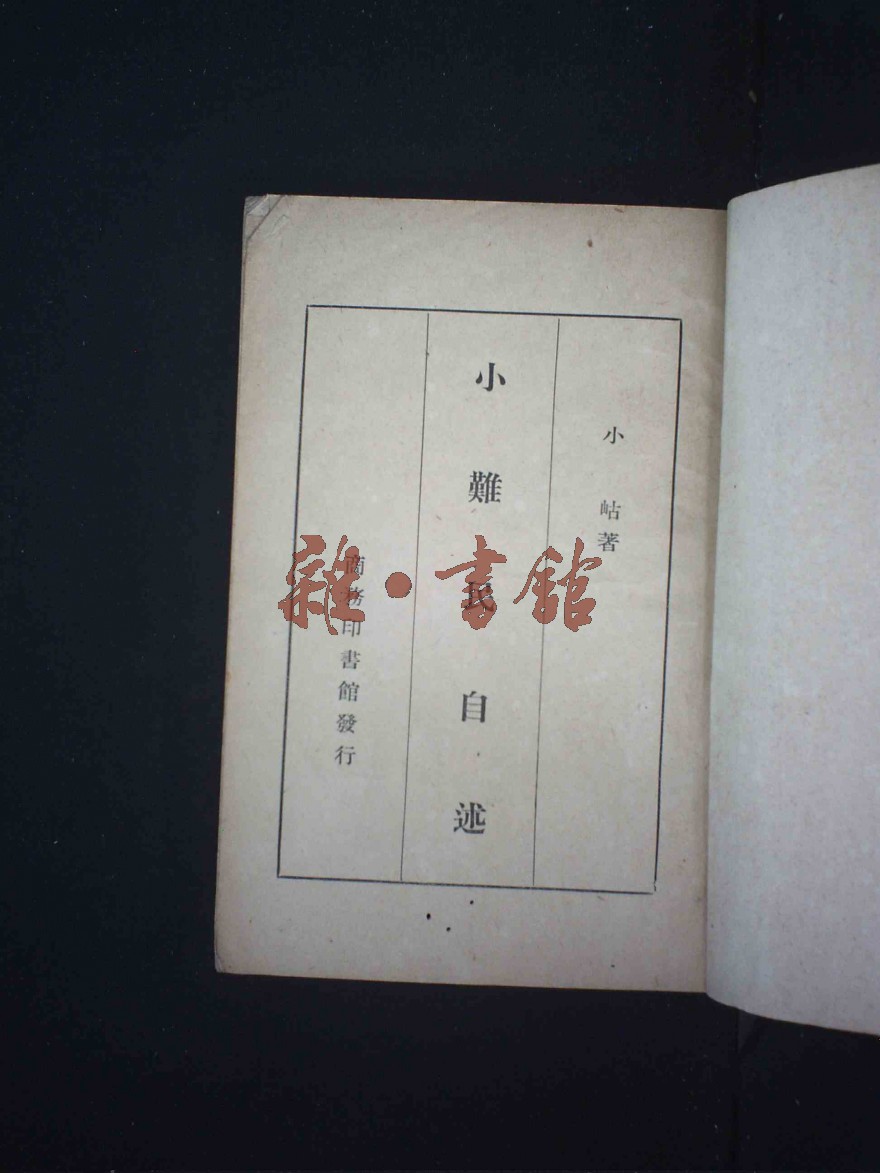 小岵著
小難民自述
商務印書館發行
雜·書館